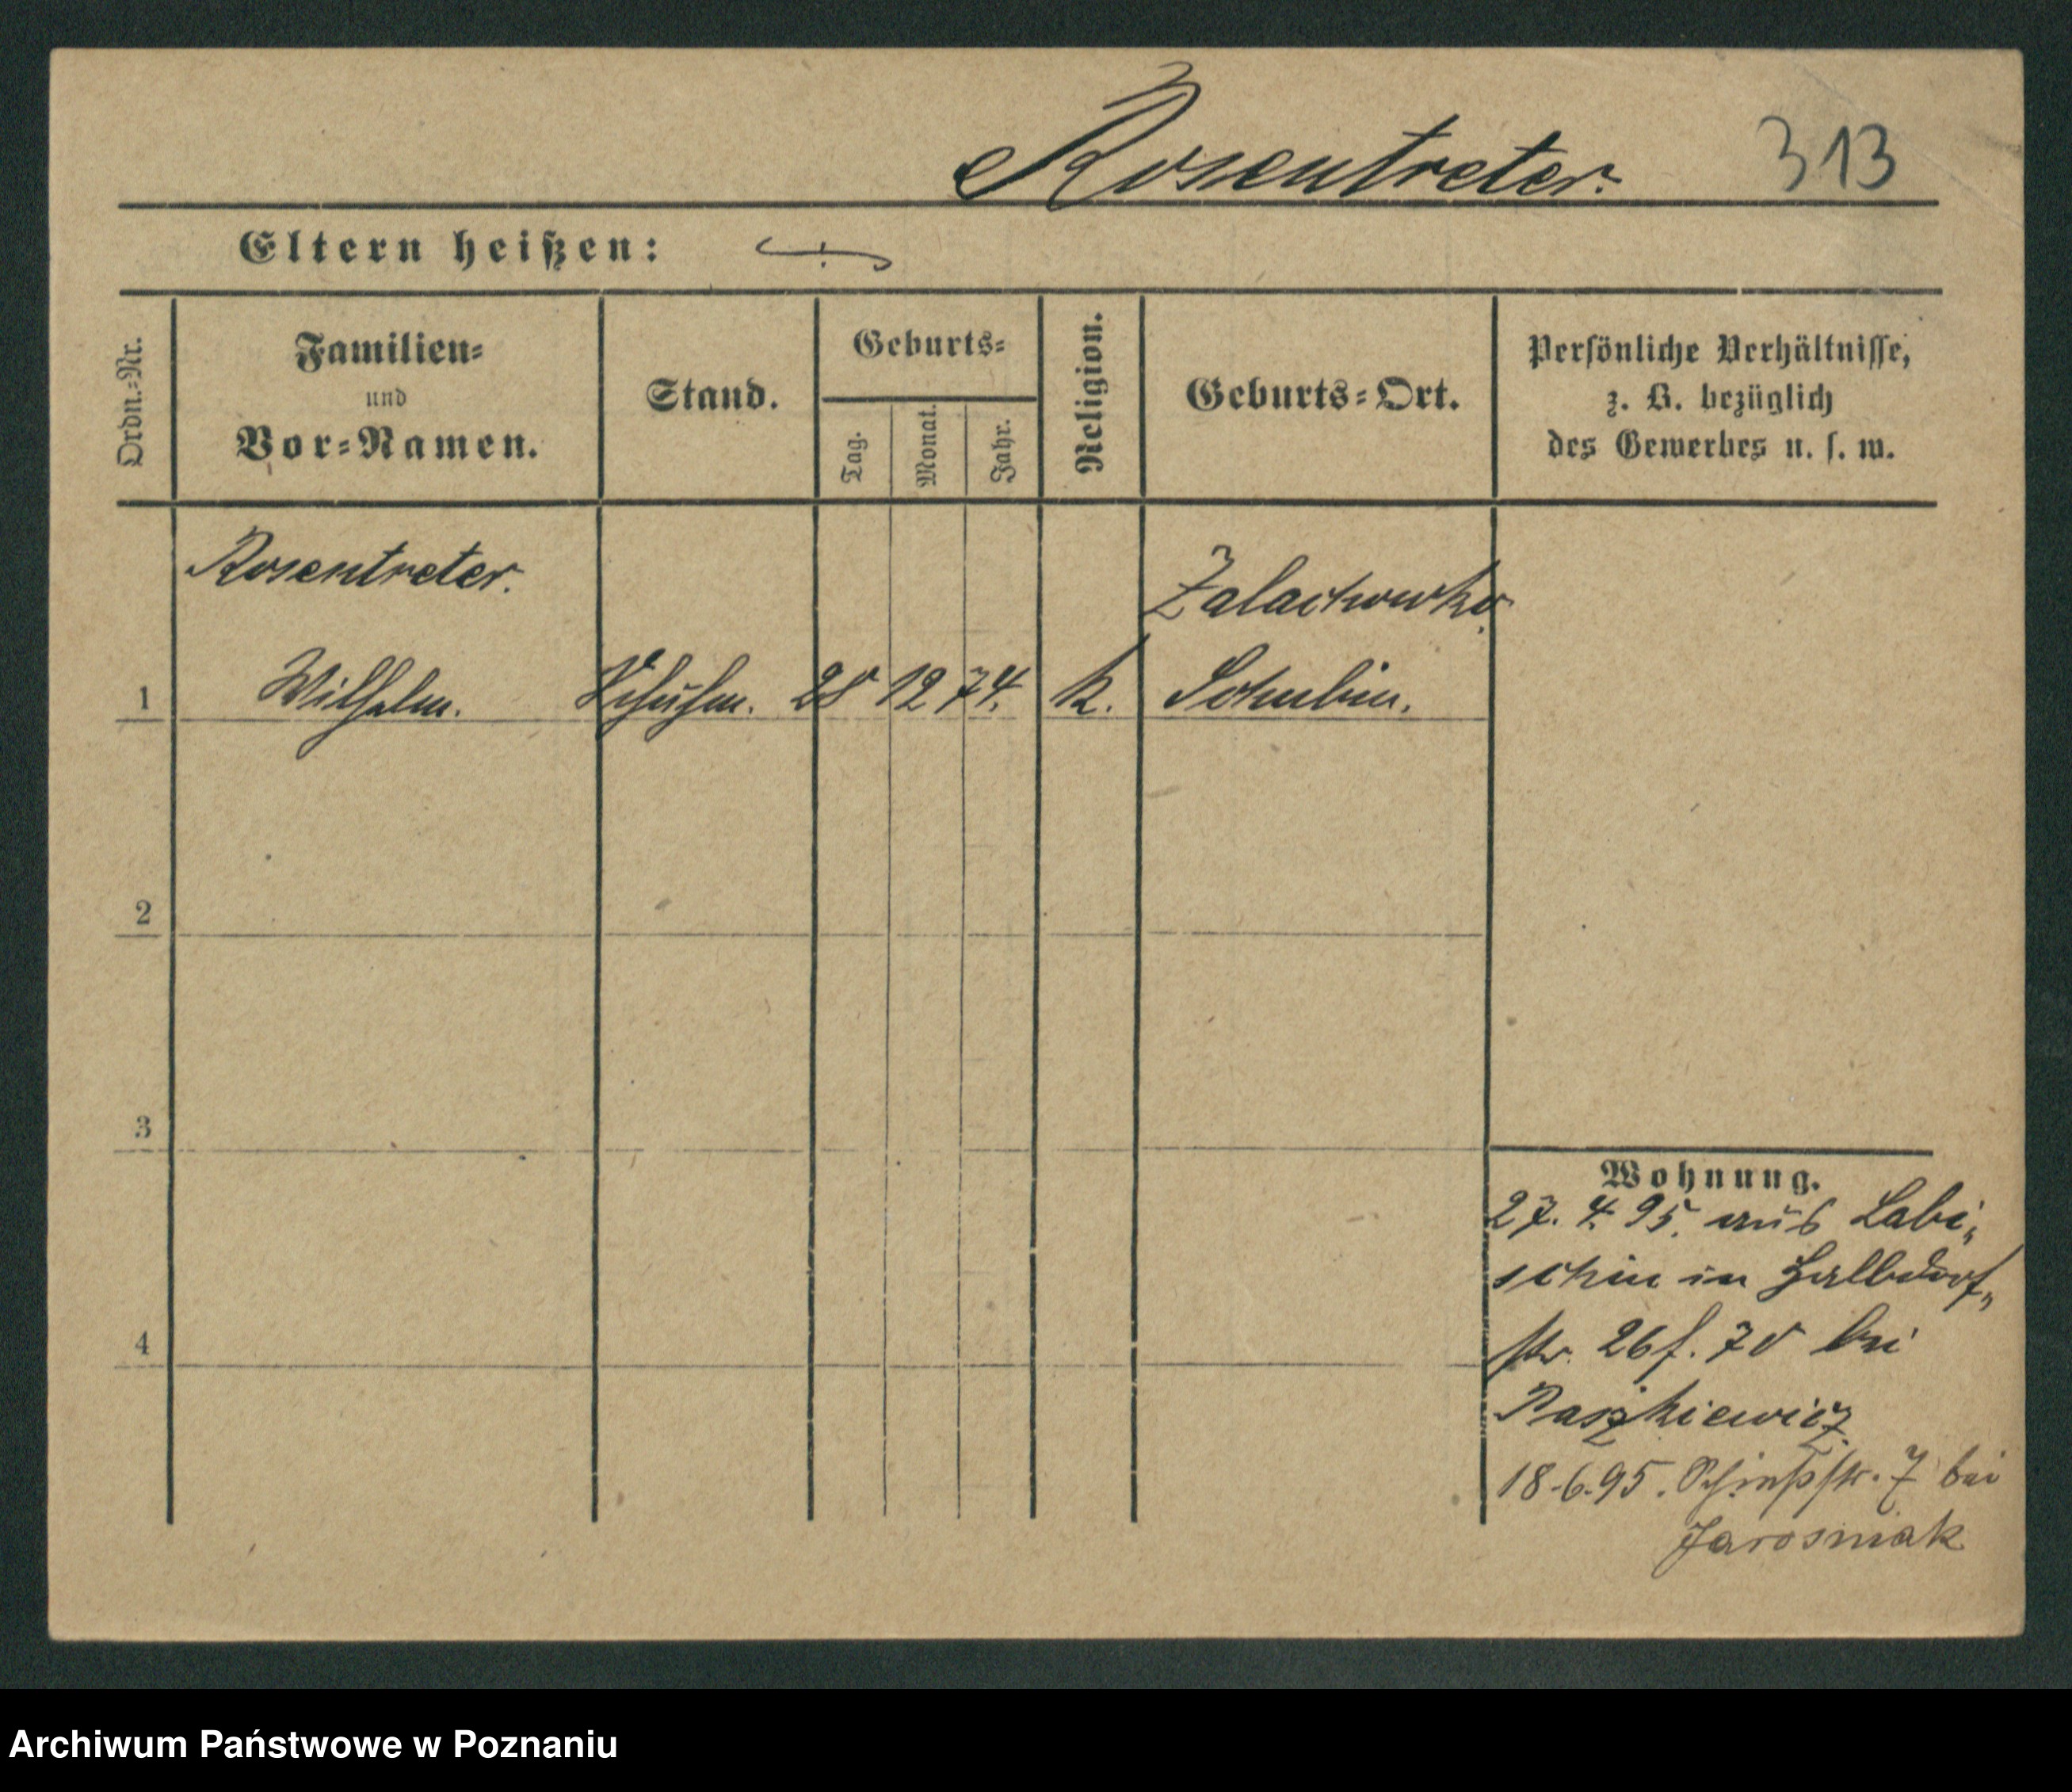 Rosentreter. 313
Eltern heißen:
Ordn.-Nr.
Familien-
und
Vor-Namen.
Stand.
Geburts-
Tag.
Monat.
Jahr.
Religion.
Geburts-Ort.
Persönliche Verhältnisse,
z. B. bezüglich
des Gewerbes u. s. w.
Rosentreter.
1 Wilhelm. Schuhm. 28 12 74. k. Schubin.
2
3
4
Wohnung.
27. 4. 95. aus Labi-
schin in Halbdorf-
str. 26 f. 70 bei
Paszkiewicz
18.6.95. Schießstr. 7 bei
Jarosniak
Archiwum Państwowe w Poznaniu